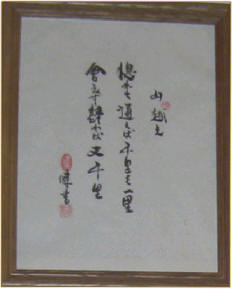 山越え
惚れて通えば千里も一里
會えず歸れば又千里
書